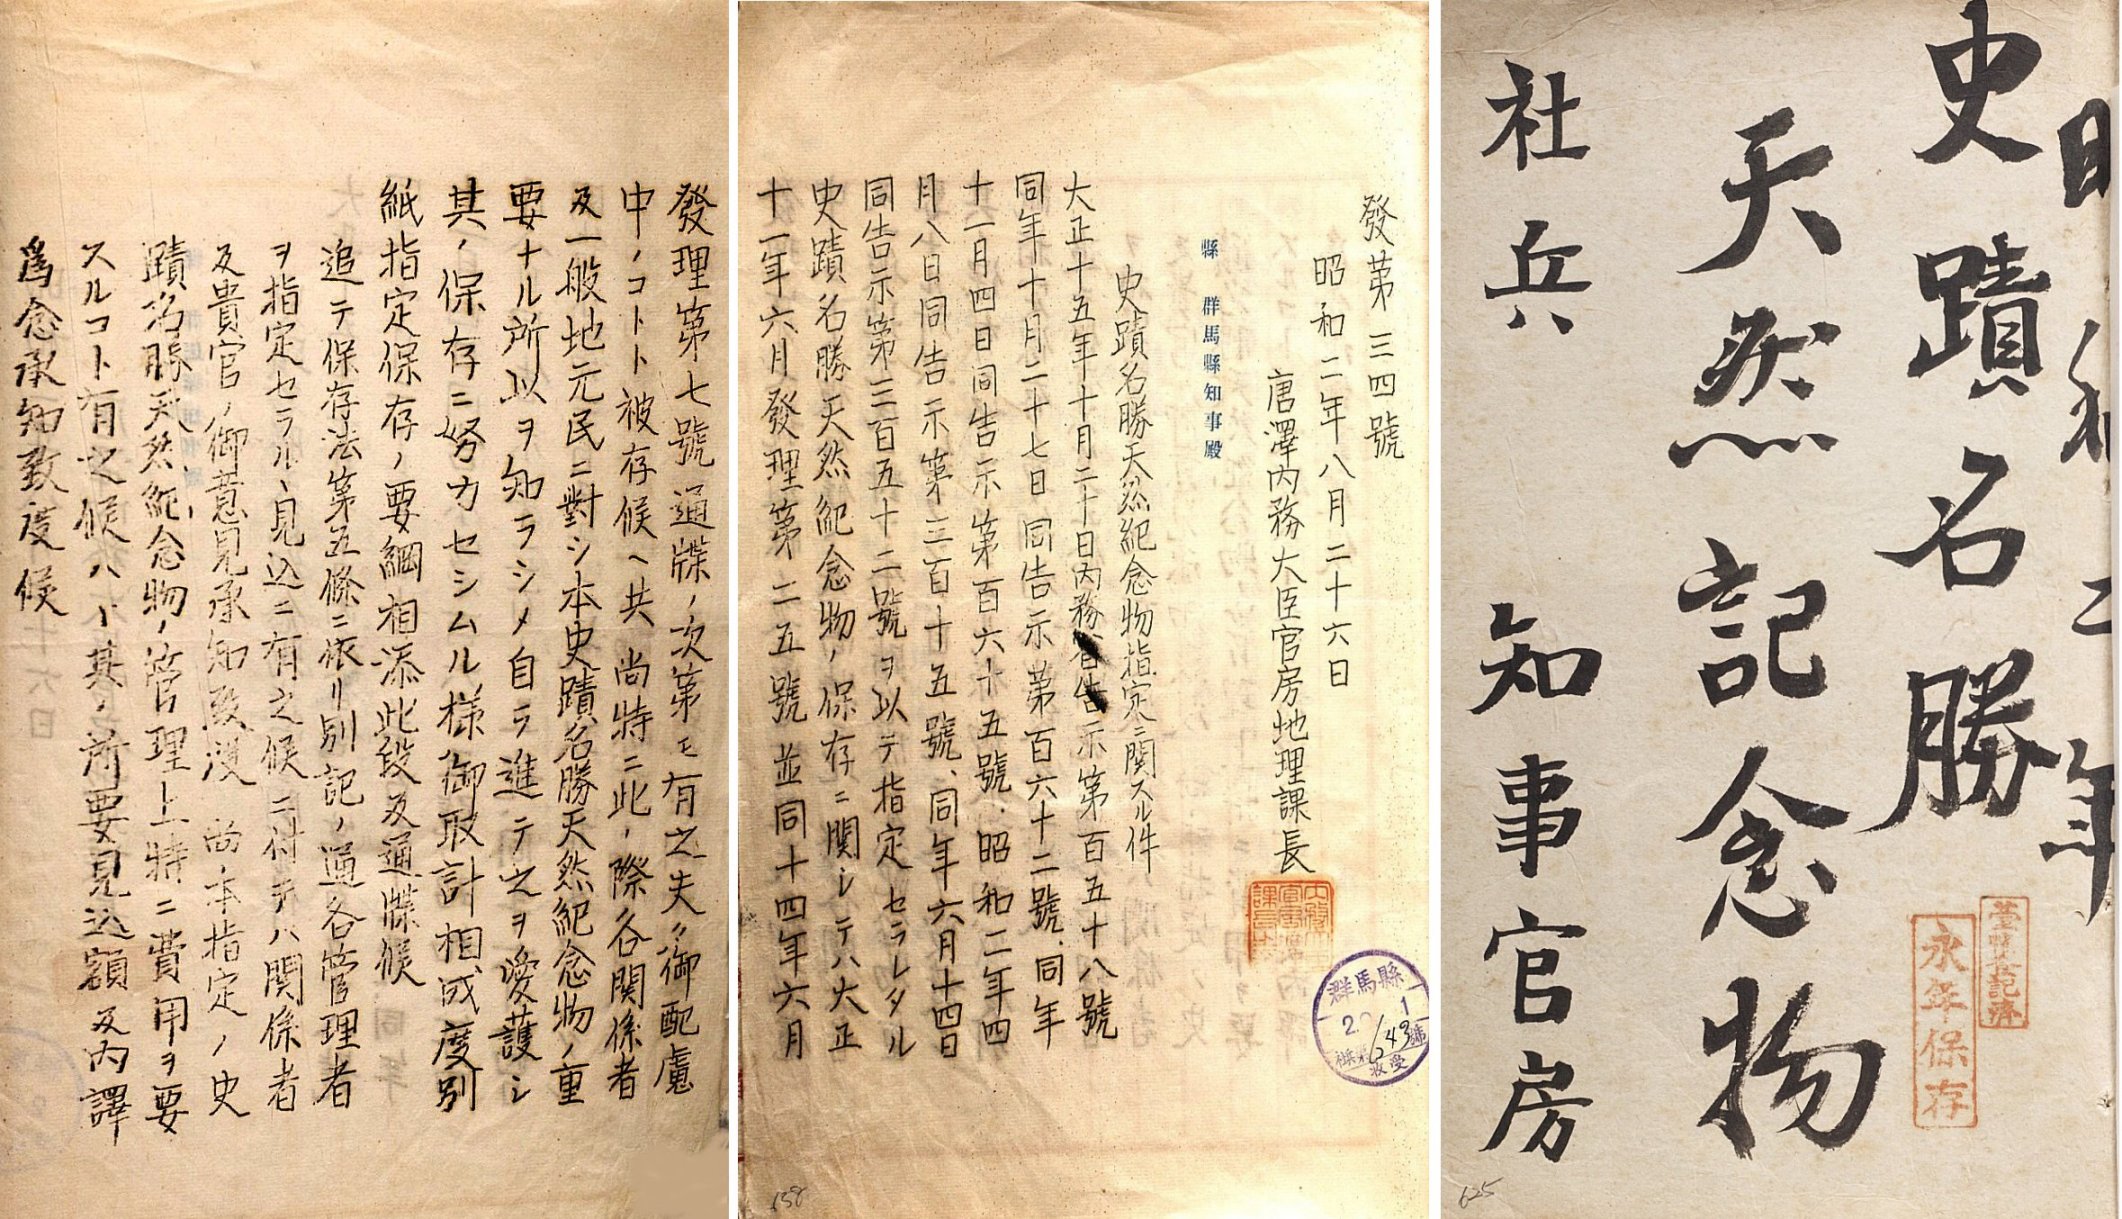 昭和二年
史蹟名勝
天然記念物
社兵
知事官房
臺帳登記濟
永年保存
625
發第三四號
昭和二年八月二十六日
唐澤内務大臣官房地理課長
縣 群馬縣知事殿
史蹟名勝天然紀念物指定ニ関スル件
大正十五年十月二十日内務省告示第百五十八號
同年十月二十七日同告示第百六十二號、同年
十一月四日同告示第百六十五號、昭和二年四
月八日同告示第三百十五號、同年六月十四日
同告示第三百五十二號ヲ以テ指定セラレタル
史蹟名勝天然紀念物ノ保存ニ関シテハ大正
十一年六月發理第二五號並同十四年六月
群馬縣
158
發理第七號通牒ノ次第モ有之夫々御配慮
中ノコトト被存候ヘ共尚特ニ此ノ際各関係者
及一般地元民ニ對シ本史蹟名勝天然紀念物ノ重
要ナル所以ヲ知ラシメ自ラ進テ之ヲ愛護シ
其ノ保存ニ努力セシムル様御取計相成度別
紙指定保存ノ要綱相添此段及通牒候
追テ保存法第五條ニ依リ別記ノ通各管理者
ヲ指定セラルヽ見込ニ有之候ニ付テハ関係者
及貴官ノ御意見承知致度尚本指定ノ史
蹟名勝天然紀念物ノ管理上特ニ費用ヲ要
スルコト有之候ハヽ其ノ所要見込額及内譯
為念承知致度候